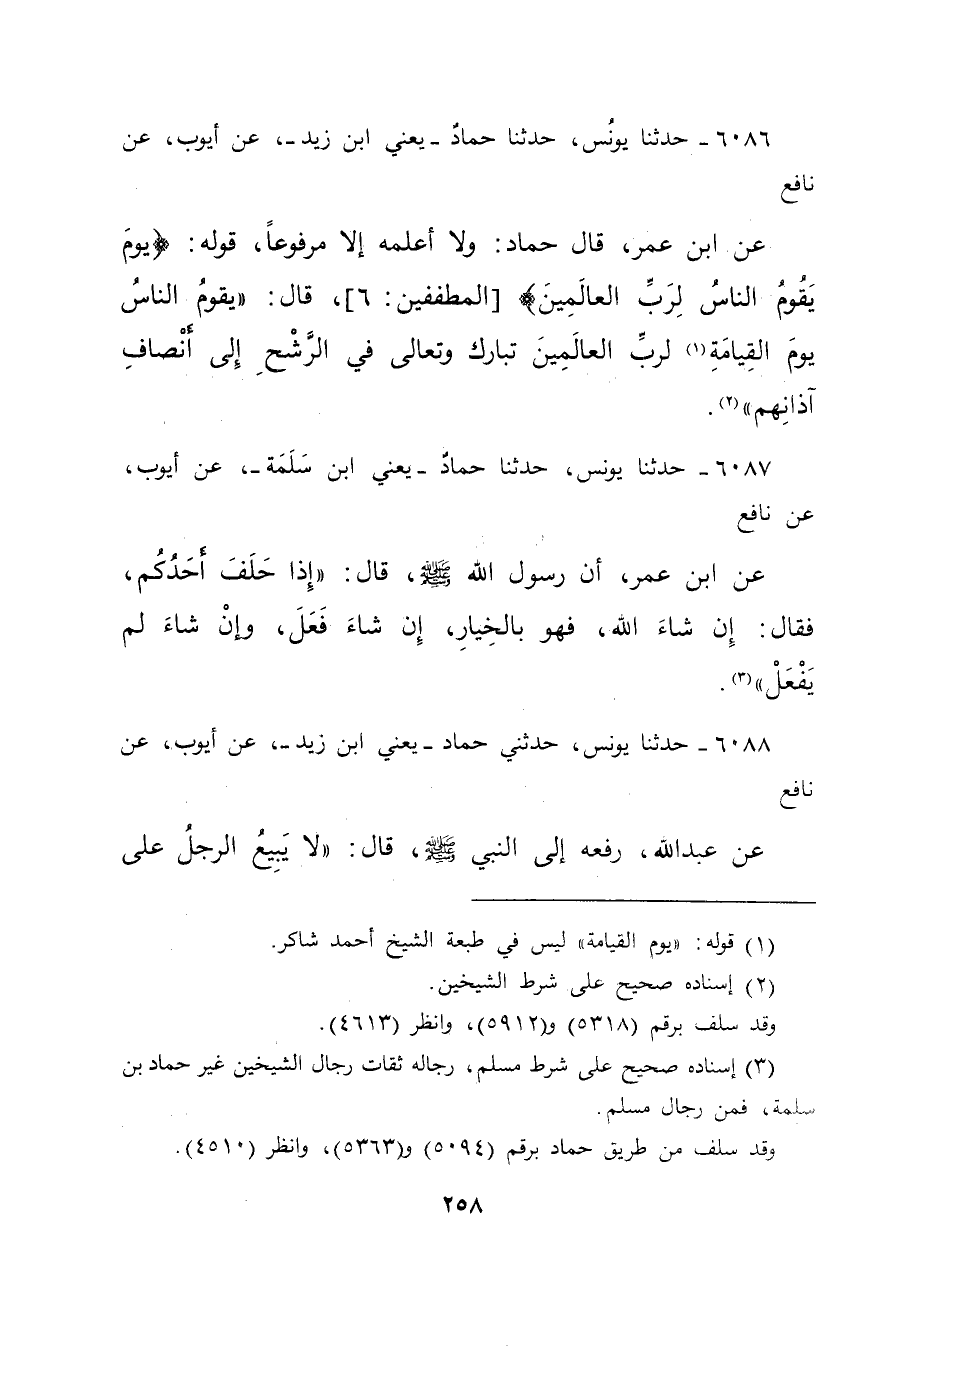 ٦٠٨٦ ـ حدثنا يونُس، حدثنا حمادٌ ـ يعني ابن زيد ـ، عن أيوب، عن
نافع
عن ابن عمر، قال حماد: ولا أعلمه إلا مرفوعاً، قوله: ﴿يومَ
يَقُومُ الناسُ لِرَبِّ العالَمِينَ﴾ [المطففين: ٦]، قال: «يقومُ الناسُ
يومَ القِيامَةِ(١) لربِّ العالَمِينَ تبارك وتعالى في الرَّشْحِ إلى أَنْصافِ
آذانِهم»(٢).
٦٠٨٧ ـ حدثنا يونس، حدثنا حمادٌ ـ يعني ابن سَلَمَة ـ، عن أيوب،
عن نافع
عن ابن عمر، أن رسول الله ﷺ، قال: «إِذا حَلَفَ أَحَدُكُم،
فقال: إِن شاءَ الله، فهو بالخِيارِ، إِن شاءَ فَعَلَ، وإنْ شاءَ لم
يَفْعَلْ»(٣).
٦٠٨٨ ـ حدثنا يونس، حدثني حماد ـ يعني ابن زيد ـ، عن أيوب، عن
نافع
عن عبدالله، رفعه إلى النبي ﷺ، قال: «لا يَبِيعُ الرجلُ على
(١) قوله: «يوم القيامة» ليس في طبعة الشيخ أحمد شاكر.
(٢) إسناده صحيح على شرط الشيخين.
وقد سلف برقم (٥٣١٨) و(٥٩١٢)، وانظر (٤٦١٣).
(٣) إسناده صحيح على شرط مسلم، رجاله ثقات رجال الشيخين غير حماد بن
سلمة، فمن رجال مسلم.
وقد سلف من طريق حماد برقم (٥٠٩٤) و(٥٣٦٣)، وانظر (٤٥١٠).
٢٥٨